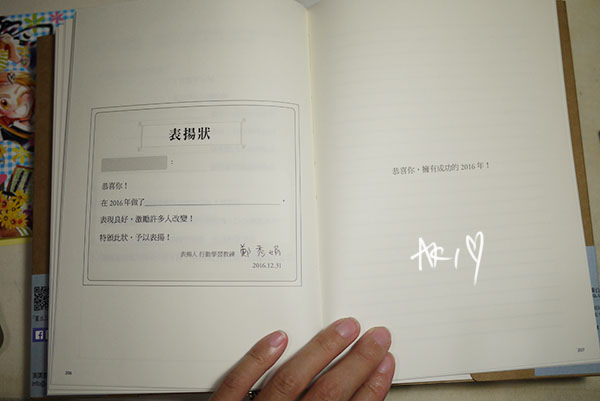 表揚狀
：
恭喜你！
在 2016 年做了                    ，
表現良好，激勵許多人改變！
特頒此狀，予以表揚！
表揚人 行動學習教練 鄭秀娟
2016.12.31
206
恭喜你，擁有成功的 2016 年！
207